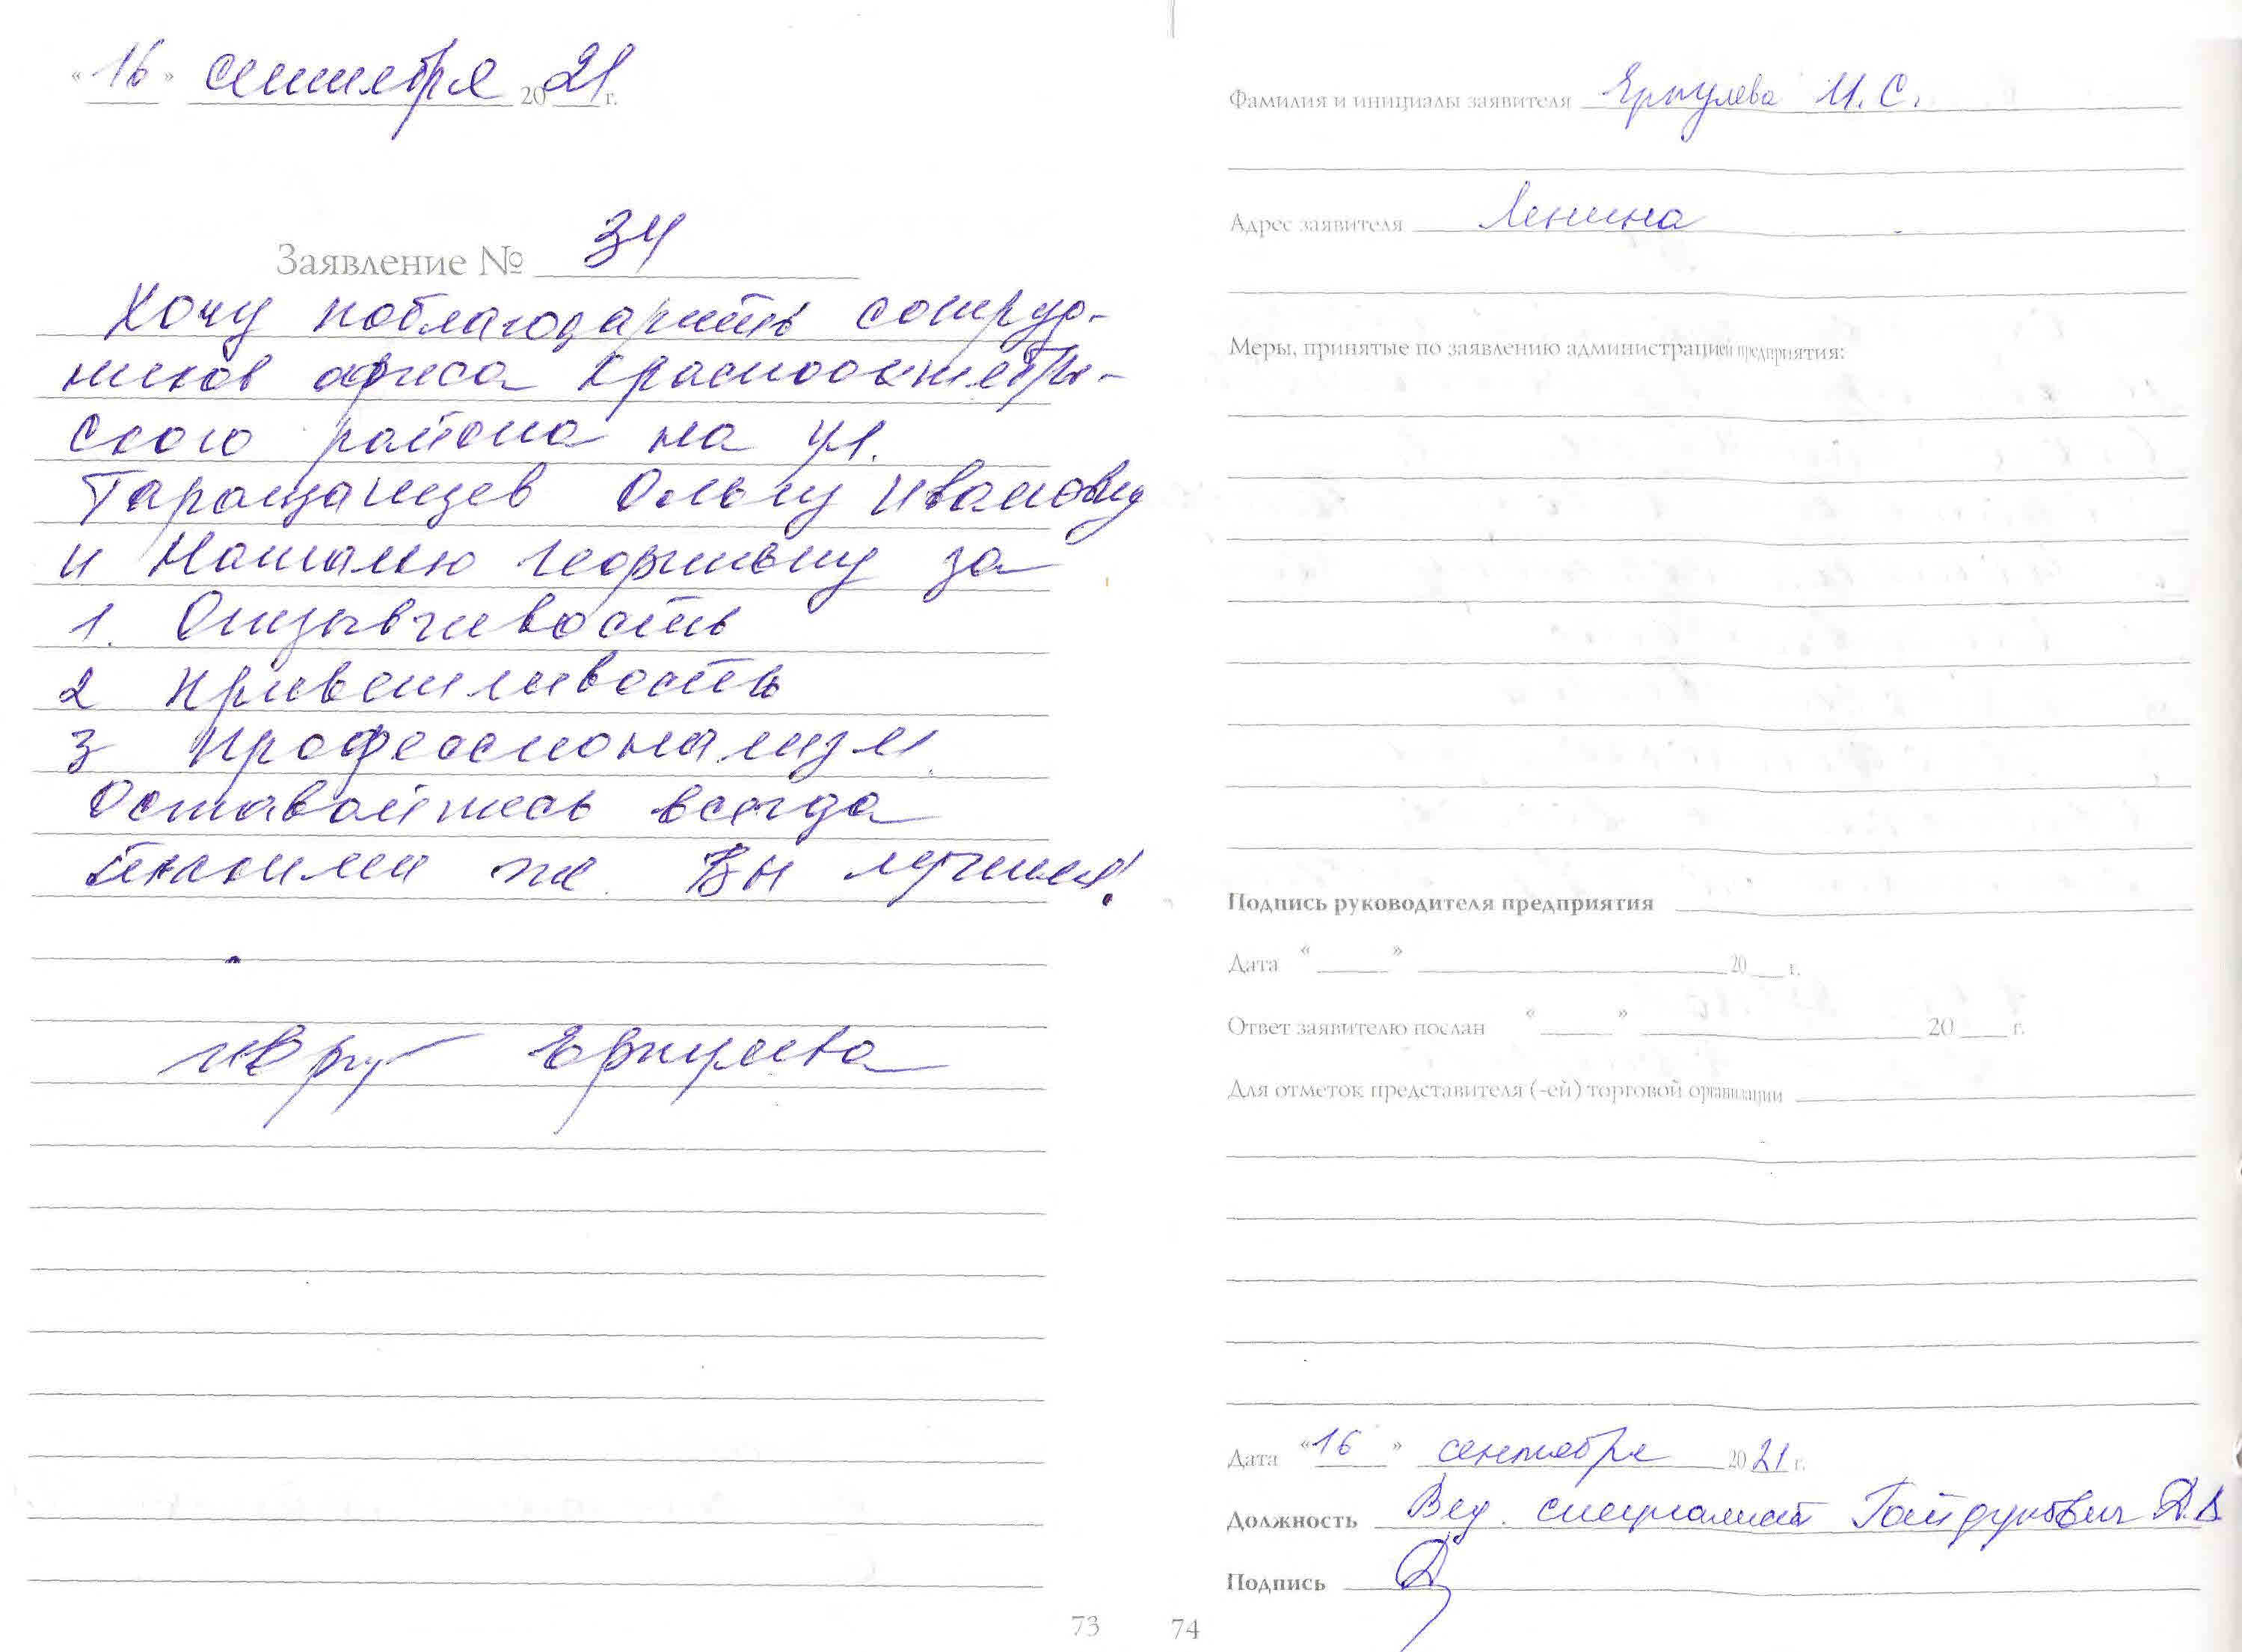 «16» сентября 2021 г.
Заявление № 34
Хочу поблагодарить сотруд-
ников офиса Краснооктябрь-
ского района на ул.
Таращанцев Ольгу Ивановну
и Наталю Георгивну за
1. Отзывчивость
2 Приветливость
3 Профессионализм.
Оставайтесь всегда
такими же. Вы лучшие!
Еркулева
73
Фамилия и инициалы заявителя Еркулева И. С.
Адрес заявителя Ленина
Меры, принятые по заявлению администрацией предприятия:
Подпись руководителя предприятия
Дата « » 20 г.
Ответ заявителю послан « » 20 г.
Для отметок представителя (-ей) торговой организации
Дата «16» сентября 2021 г.
Должность Вед. специалист Гайдукович Д.В.
Подпись
74